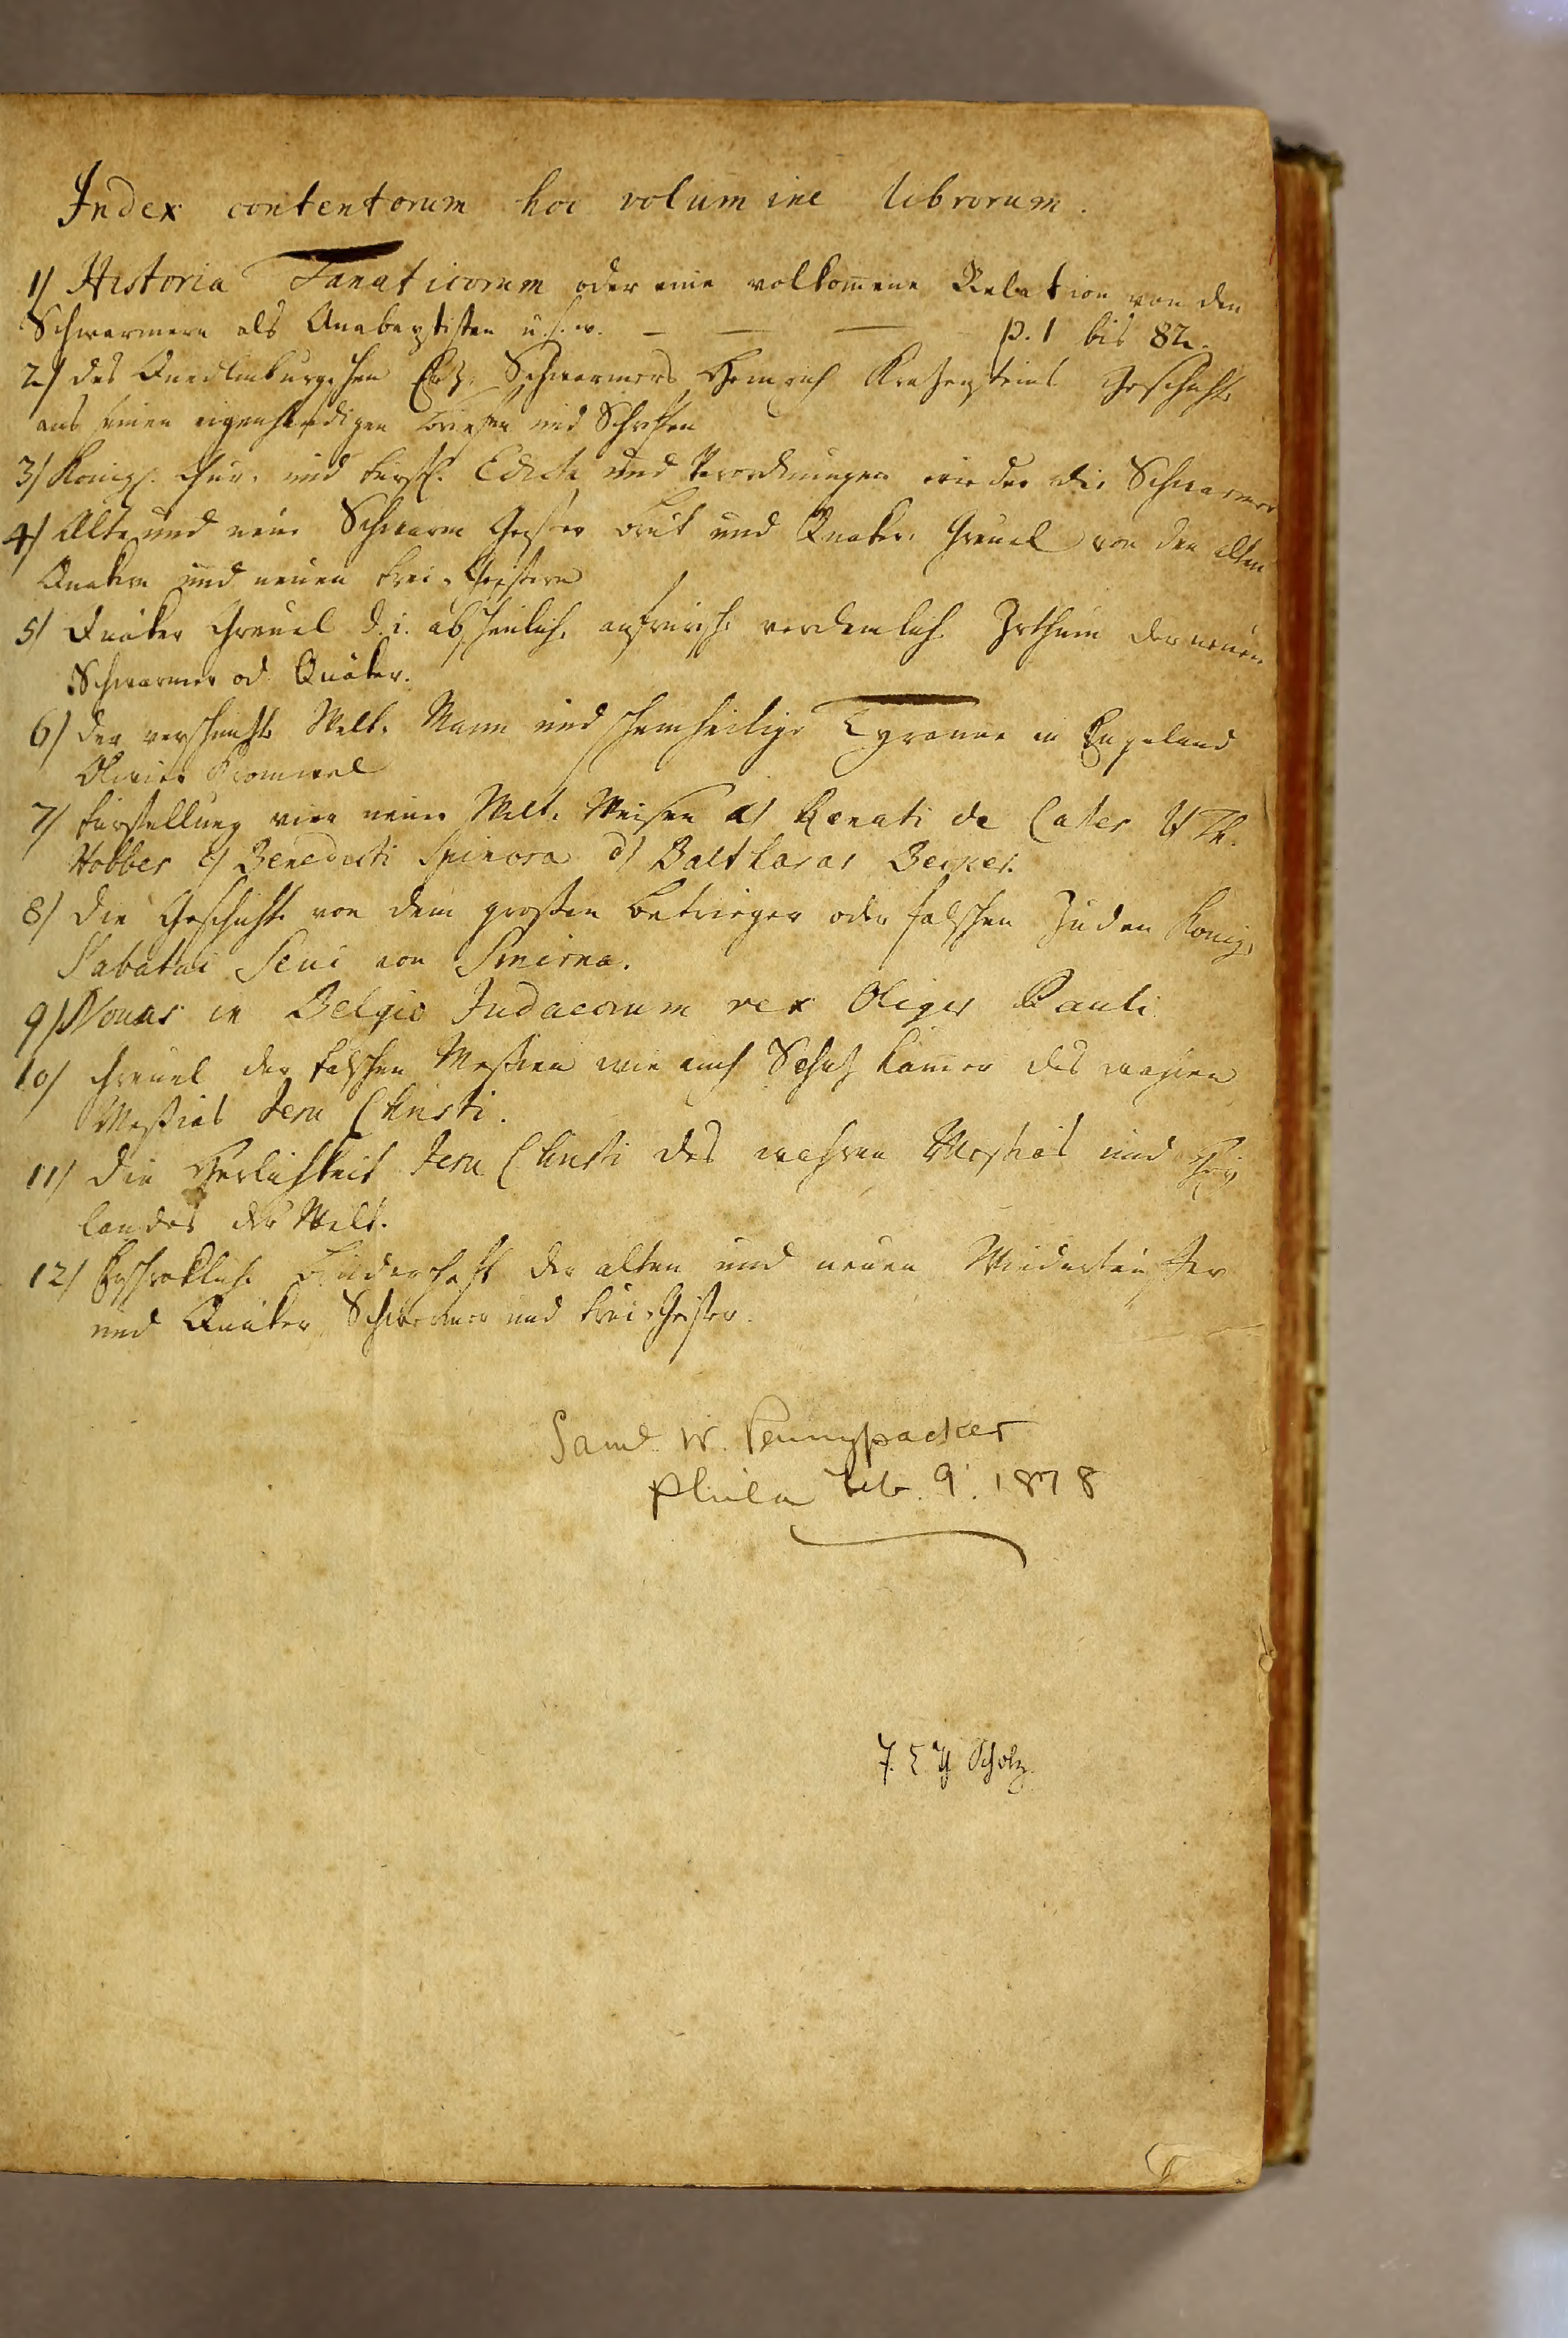 Index contentorum hoc volumine librorum.
1/ Historia Fanaticorum oder eine volkom̄ene Relation von den
Schwarmern als Anabaptisten u. s. w. — — — p. 1 bis 82.
2/ des Quedlinburgschen Erz-Schwarmers Heinrich Kratzensteins Geschichte
aus seinen eigenhändigen Briefen und Schriften
3/ Königl. Chur- und Fürstl. Edicta und Verordnungen wieder die Schwarmer
4/ Alte und neue Schwarm Geister Brut und Quaker-Greuel von den alten
Quakern und neuen Frei-Geistern
5/ Quäker Greuel d. i. abscheuliche aufrürische Irthum der neuen
Schwarmer od Quäker.
6/ der Welt-Mann und scheinheilige Tyranne in Engeland
Olivier Cromwel
7/ Fürstellung vier neuer Welt-Weisen a/ Renati de Cartes b/ Th.
Hobbes c/ Benedicti Spinosa d/ Balthasar Becker.
8/ die Geschichte von dem großen Betrieger oder falschen Juden König,
Sabatai Sevi von Smirna.
9/ Novus in Belgio Judaeorum rex Oliger Pauli
10/ Greuel der falschen Messien wie auch Schatz Kam̄er des wahren
Messias Jesu Christi.
11/ die Herlichkeit Jesu Christi des wahren Messias und Hei
landes der Welt.
12/ Erschrökliche Brüderschaft der alten und neuen Wiedertäuffer
und Quäker, Schwermer und Frei-Geister.
Saml. W. Pennypacker
Phila Feb. 9. 1878
Scholz.